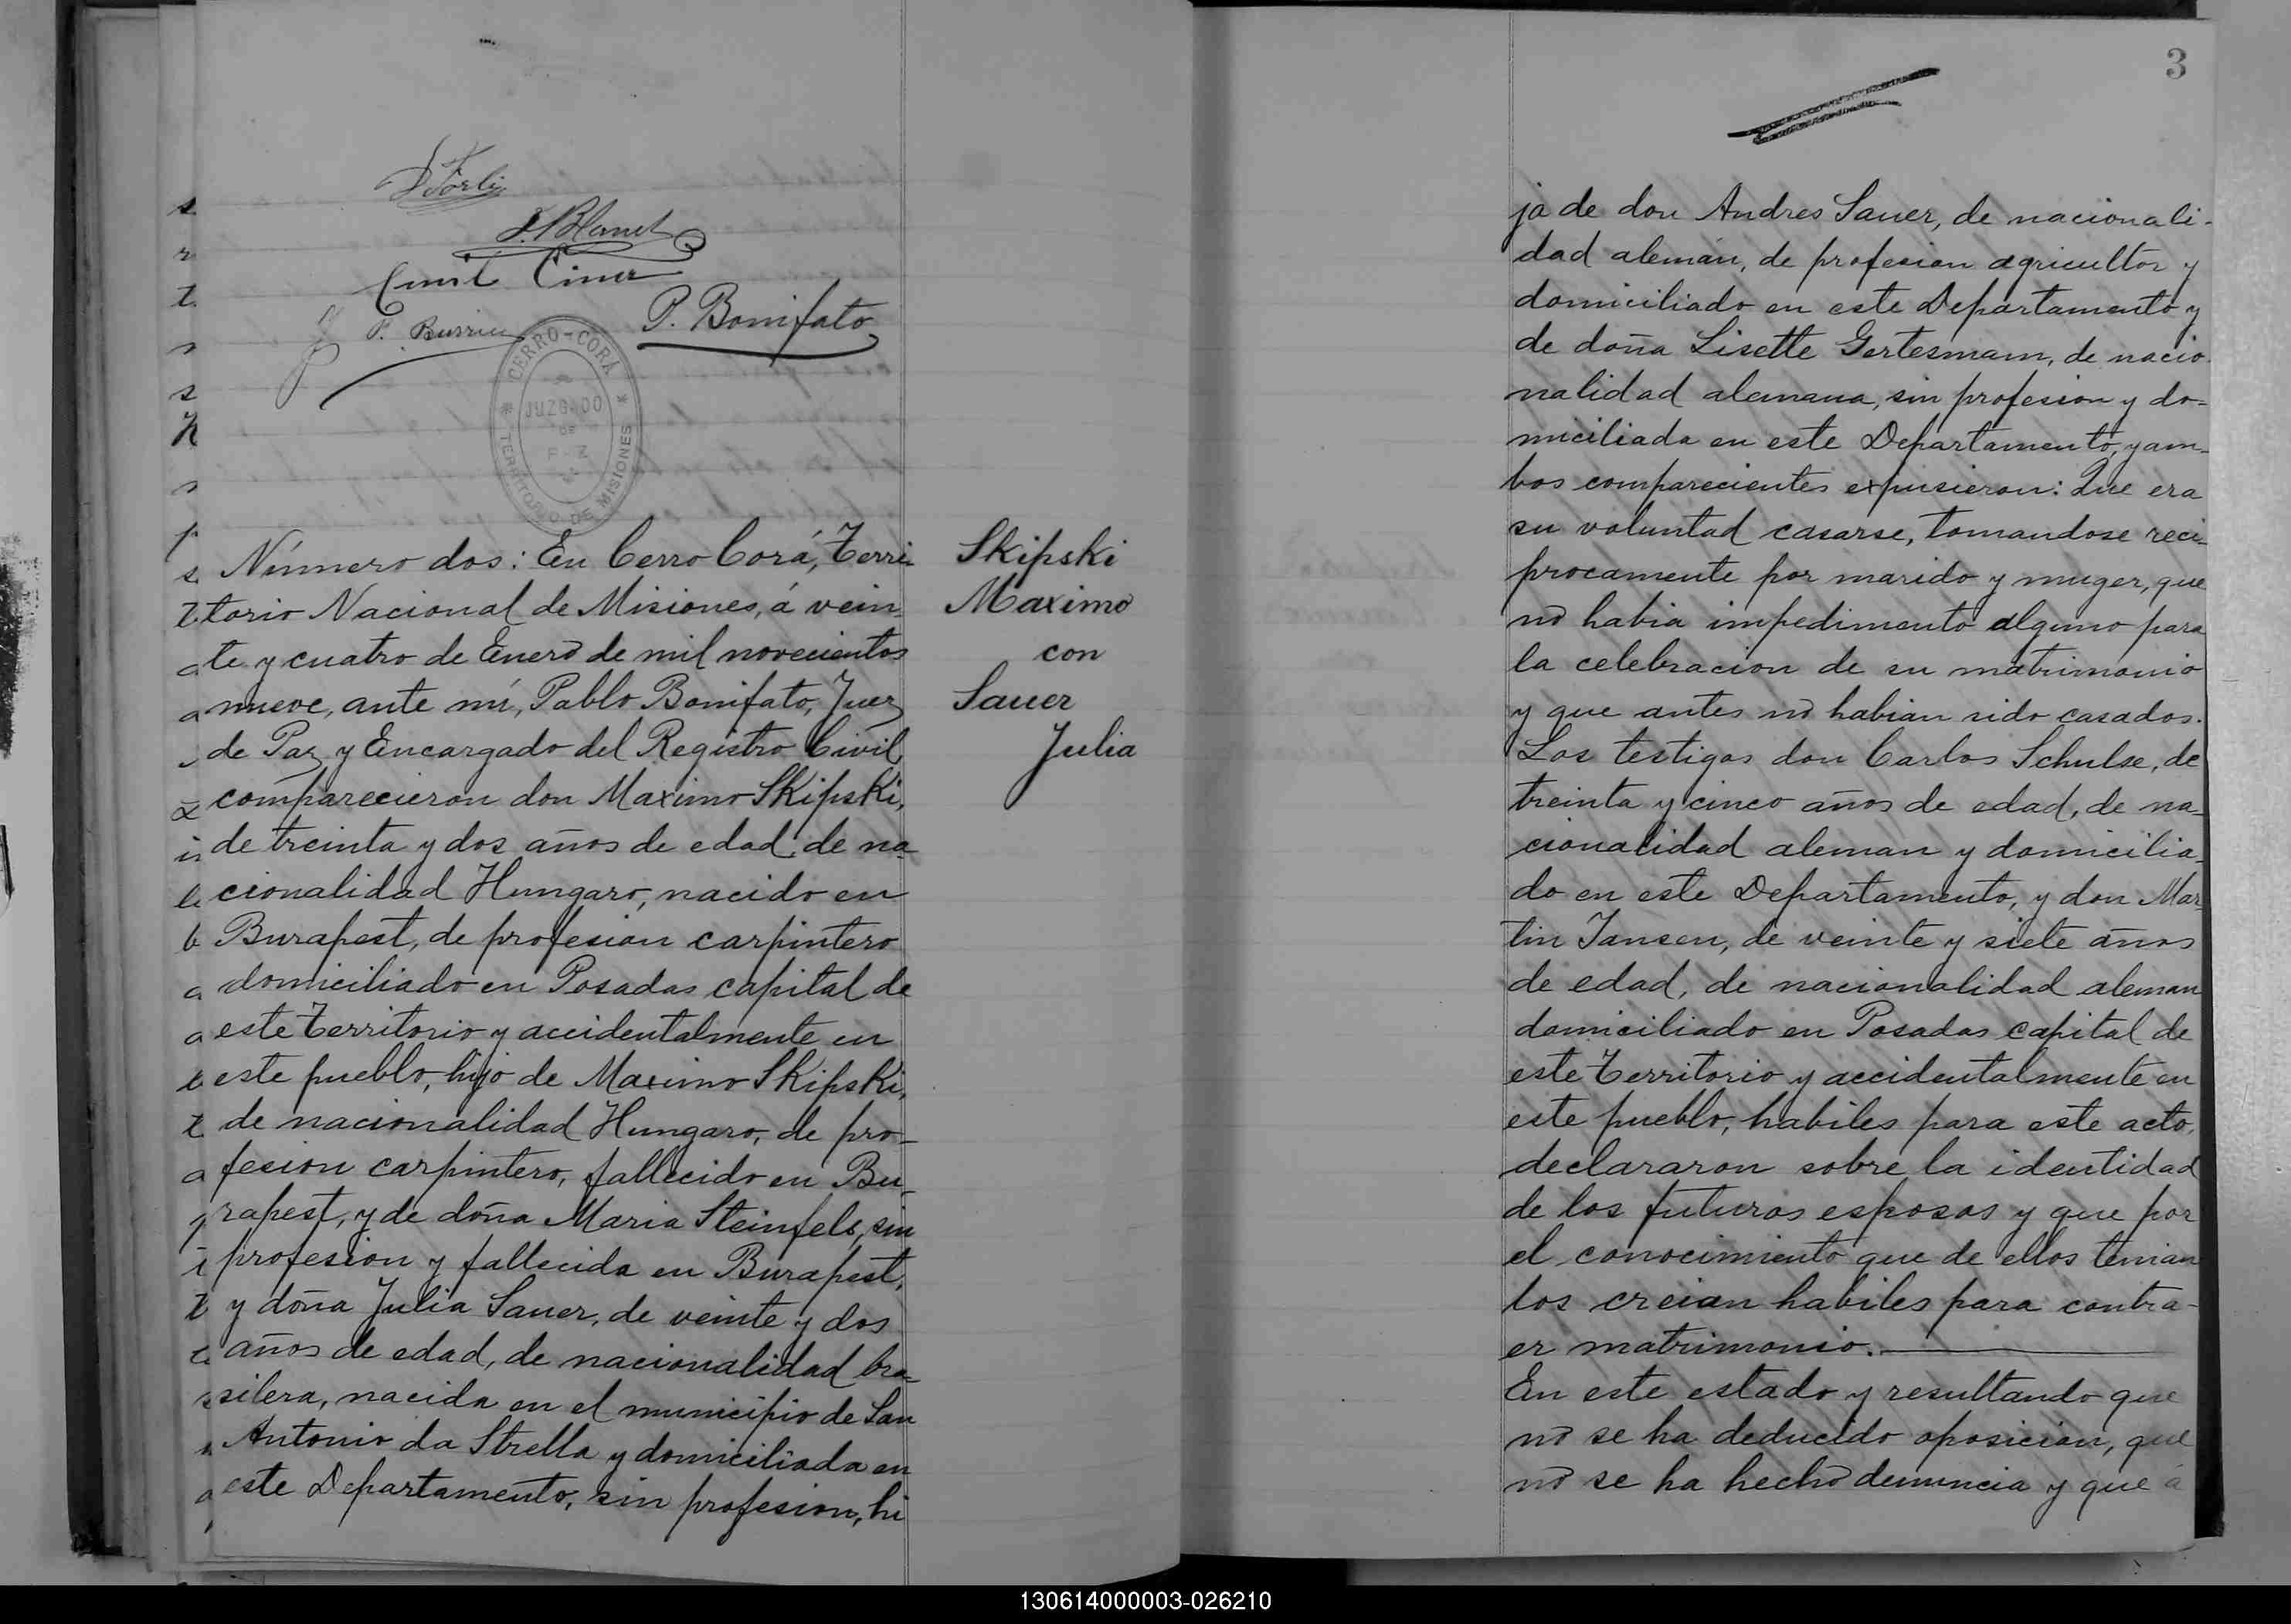 P. Bonifato
CERRO-CORÁ
JUZGADO
DE
PAZ
TERRITORIO DE MISIONES
Número dos: En Cerro Corá, Terri-
torio Nacional de Misiones, á vein-
te y cuatro de Enero de mil novecientos
nueve, ante mí, Pablo Bonifato, Juez
de Paz y Encargado del Registro Civil,
comparecieron don Maximo Skipski,
de treinta y dos años de edad, de na-
cionalidad Hungaro, nacido en
Burapest, de profesion carpintero
domiciliado en Posadas capital de
este Territorio y accidentalmente en
este pueblo, hijo de Maximo Skipski,
de nacionalidad Hungaro, de pro-
fesion carpintero, fallecido en Bu-
rapest, y de doña Maria Steinfels, sin
profesion y fallecida en Burapest,
y doña Julia Sauer, de veinte y dos
años de edad, de nacionalidad bra-
silera, nacida en el municipio de San
Antonio da Strella y domiciliada en
este Departamento, sin profesion, hi
Skipski
Maximo
con
Sauer
Julia
3
ja de don Andres Sauer, de nacionali-
dad alemán, de profesion agricultor y
domiciliado en este Departamento y
de doña Lisette Gertesmann, de nacio-
nalidad alemana, sin profesion y do-
miciliada en este Departamento, y am-
bos comparecientes expusieron: Que era
su voluntad casarse, tomandose reci-
procamente por marido y muger, que
no habia impedimento alguno para
la celebracion de su matrimonio
y que antes no habian sido casados.
Los testigos don Carlos Schulse, de
treinta y cinco años de edad, de na-
cionalidad aleman y domicilia-
do en este Departamento, y don Mar-
tin Jansen, de veinte y siete años
de edad, de nacionalidad aleman
domiciliado en Posadas capital de
este Territorio y accidentalmente en
este pueblo, habiles para este acto,
declararon sobre la identidad
de los futuros esposos y que por
el conocimiento que de ellos tenian
los creian habiles para contra-
er matrimonio.
En este estado y resultando que
no se ha deducido oposicion, que
no se ha hecho denuncia y que á
130614000003-026210